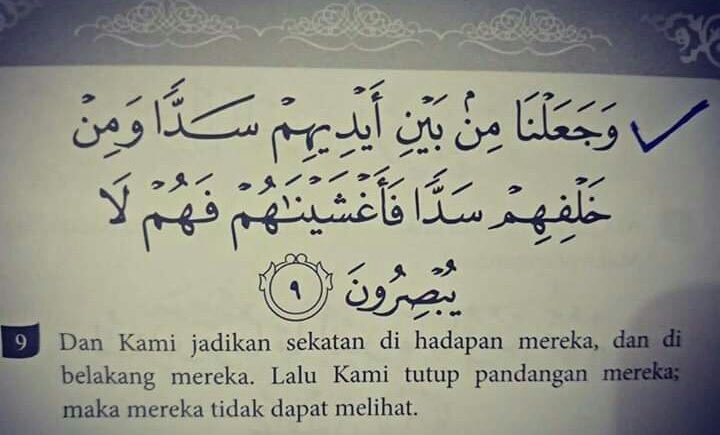 وَجَعَلْنَا مِنۢ بَيْنِ أَيْدِيهِمْ سَدًّا وَمِنْ
خَلْفِهِمْ سَدًّا فَأَغْشَيْنَـٰهُمْ فَهُمْ لَا
يُبْصِرُونَ ٩
9 Dan Kami jadikan sekatan di hadapan mereka, dan di
belakang mereka. Lalu Kami tutup pandangan mereka;
maka mereka tidak dapat melihat.